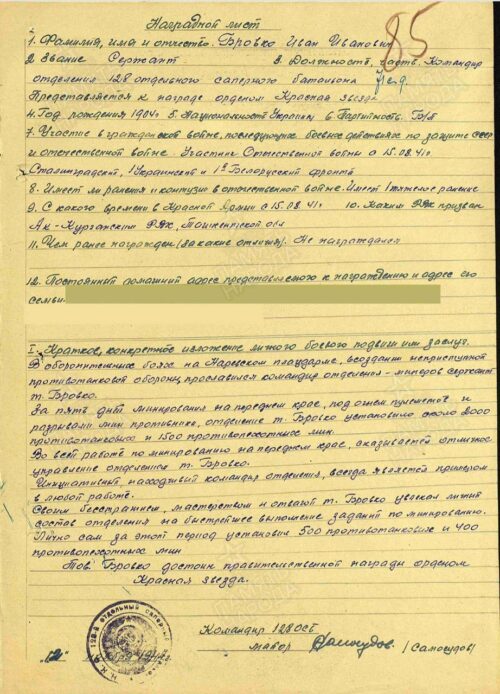 85
Наградной лист
1. Фамилия, имя и отчество. Бровко Иван Иванович
2. Звание Сержант 3. Должность, часть. Командир
отделения 128 отдельного саперного батальона
Представляется к награде орденом Красная звезда
4. Год рождения 1904г. 5. Национальность Украинец 6. Партийность. Б/п
7. Участие в гражданской войне, последующих боевых действиях по защите СССР
и отечественной войне. Участник Отечественной войны с 15.08.41г
Сталинградский, 1 Украинский и 1й Белорусский фронты
8. Имеет ли ранения и контузии в отечественной войне. Имеет 1 тяжелое ранение
9. С какого времени в Красной Армии с 15.08.41г 10. Каким РВК призван
Ак-Курганским РВК, Ташкентской обл
11. Чем ранее награжден (за какие отличия). Не награждался
12. Постоянный домашний адрес представляемого к награждению и адрес его
семьи.
I. Краткое, конкретное изложение личного боевого подвига или заслуг.
В оборонительных боях на Наревском плацдарме, в создании неприступной
противотанковой обороны, прославился командир отделения - минеров сержант
т. Бровко.
За пять дней минирования на переднем крае, под огнем пулеметов и
разрывами мин противника, отделение т. Бровко установило около 2000
противотанковых и 1500 противопехотных мин.
Во всей работе по минированию на переднем крае, сказывается отличное
управление отделением т. Бровко.
Инициативный, находчивый командир отделения, всегда является примером
в любой работе.
Своим бесстрашием, мастерством и отвагой т. Бровко увлекал личный
состав отделения на быстрейшее выполнение заданий по минированию.
Лично сам за этот период установил 500 противотанковых и 400
противопехотных мин
Тов. Бровко достоин правительственной награды орденом
Красная звезда.
Командир 128 ОСБ
майор Самосудов /Самосудов/
"12"